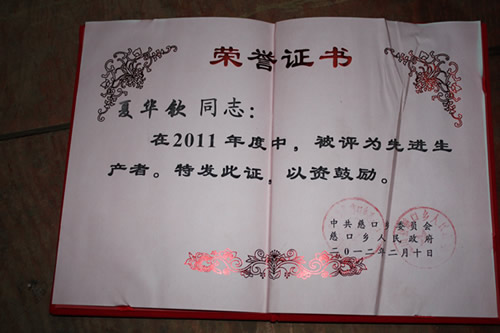 荣誉证书
夏华钦 同志：
在2011年度中，被评为先进生
产者。特发此证，以资鼓励。
中共慈口乡委员会
慈口乡人民政府
二0一二年二月十日